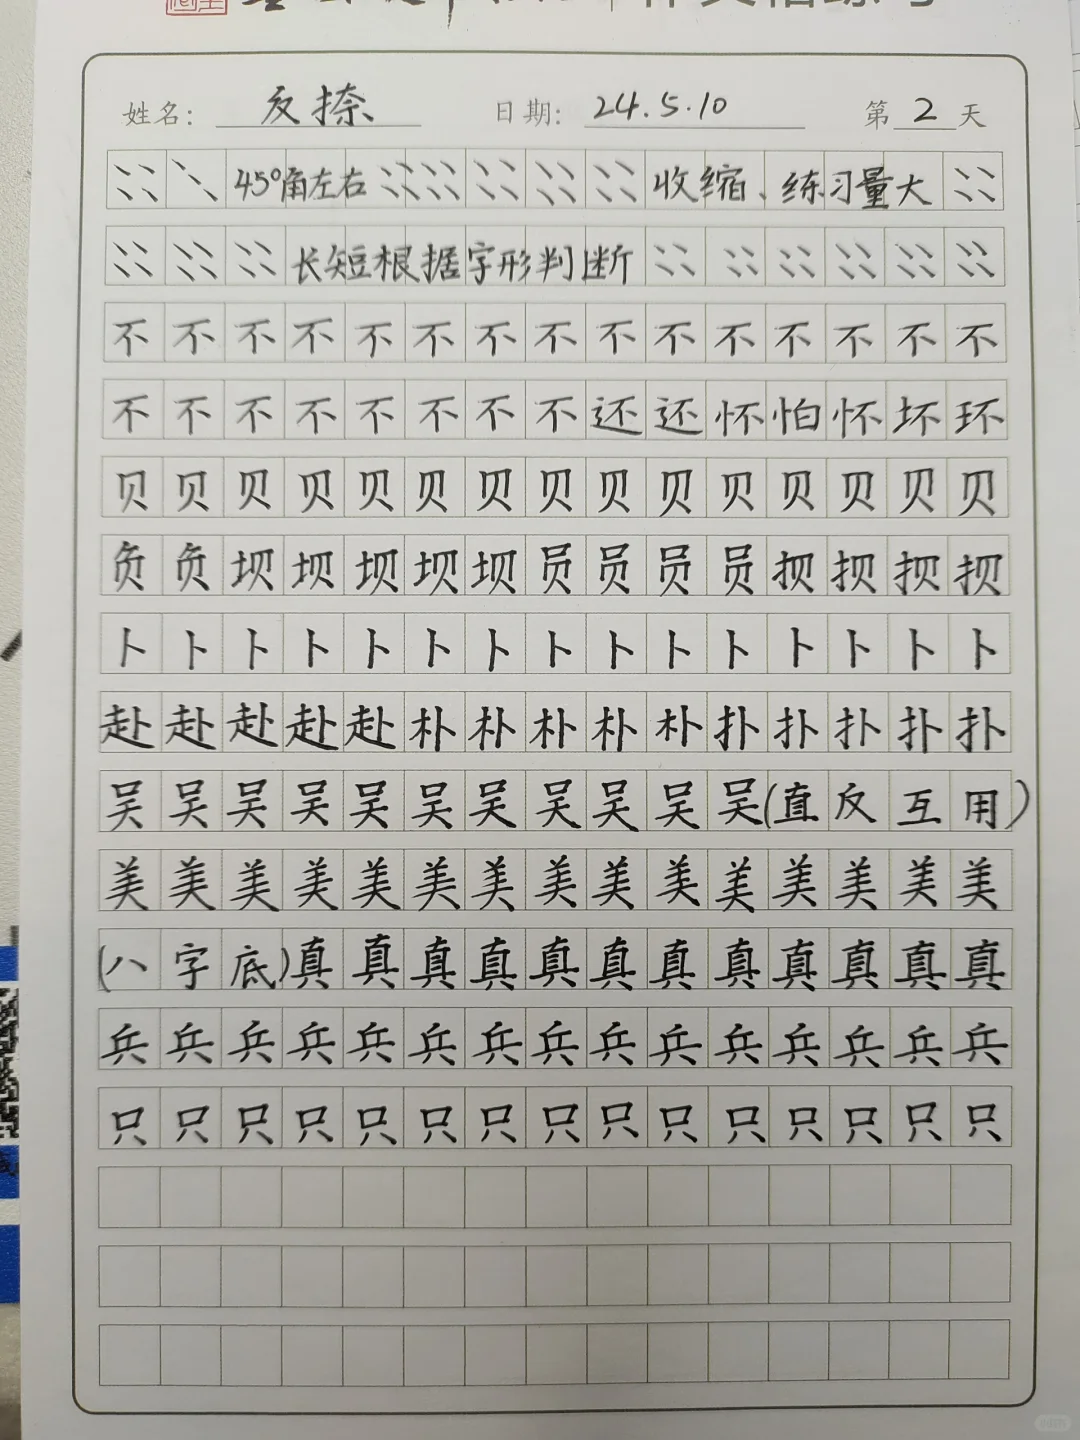 姓名: 反捺 日期: 24.5.10 第2天
45°角左右 收缩、练习量大
长短根据字形判断
不不不不不不不不不不不不不不不
不不不不不不不不还还怀怕怀坏环
贝贝贝贝贝贝贝贝贝贝贝贝贝贝贝
负负坝坝坝坝坝员员员员损损损损
卜卜卜卜卜卜卜卜卜卜卜卜卜卜卜
赴赴赴赴赴朴朴朴朴朴扑扑扑扑扑
吴吴吴吴吴吴吴吴吴吴吴(直反互用)
美美美美美美美美美美美美美美美
(八字底)真真真真真真真真真真真真
兵兵兵兵兵兵兵兵兵兵兵兵兵兵兵
只只只只只只只只只只只只只只只